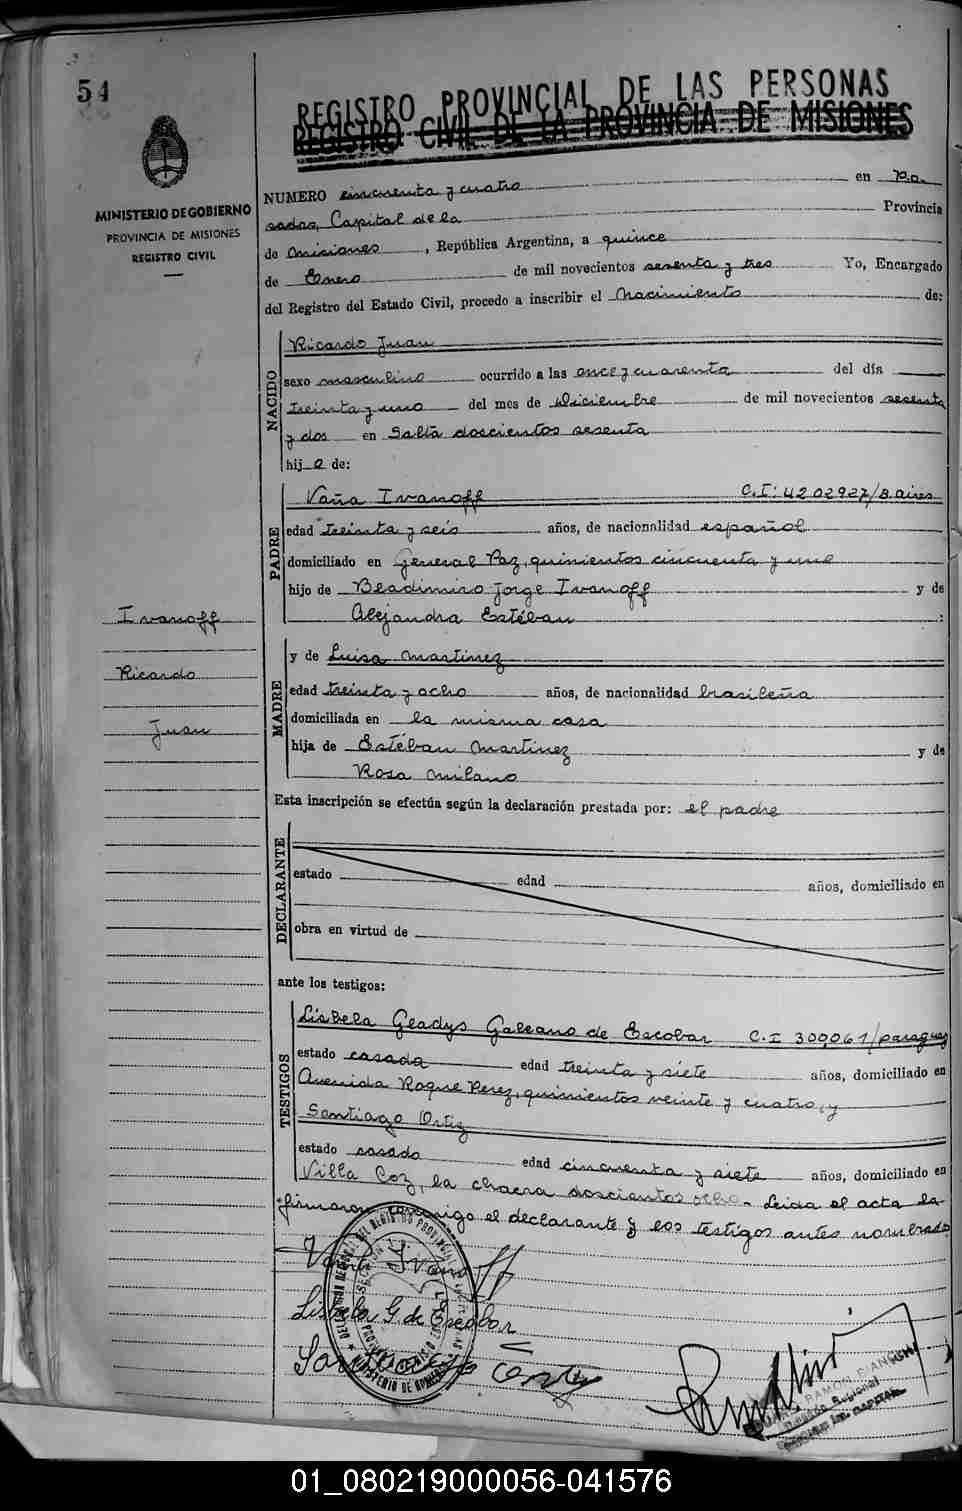 54
MINISTERIO DE GOBIERNO
PROVINCIA DE MISIONES
REGISTRO CIVIL
Ivanoff
Ricardo
Juan
REGISTRO PROVINCIAL DE LAS PERSONAS
REGISTRO CIVIL DE LA PROVINCIA DE MISIONES
NUMERO cincuenta y cuatro en Po
sadas, Capital de la Provincia
de Misiones, República Argentina, a quince
de Enero de mil novecientos sesenta y tres Yo, Encargado
del Registro del Estado Civil, procedo a inscribir el Nacimiento de:
NACIDO
Ricardo Juan
sexo masculino ocurrido a las once y cuarenta del día
treinta y uno del mes de Diciembre de mil novecientos sesenta
y dos en Salta doscientos sesenta
hijo de:
PADRE
Vaña Ivanoff C.I: 4202927/B.aires
edad treinta y seis años, de nacionalidad español
domiciliado en General Paz, quinientos cincuenta y uno
hijo de Bladimiro Jorge Ivanoff y de
Alejandra Estéban :
MADRE
y de Luisa Martinez
edad treinta y ocho años, de nacionalidad brasileña
domiciliada en la misma casa
hija de Estéban Martinez y de
Rosa Milano
Esta inscripción se efectúa según la declaración prestada por: el padre
DECLARANTE
estado edad años, domiciliado en
obra en virtud de
ante los testigos:
TESTIGOS
Lisbela Gladys Galeano de Escobar C.I 300,061/paraguay
estado casada edad treinta y siete años, domiciliado en
Avenida Roque Perez, quinientos veinte y cuatro, y
Santiago Ortiz
estado casado edad cincuenta y siete años, domiciliado en
Villa Coz, la chacra doscientos ocho - Leida el acta la
firmaron conmigo el declarante y los testigos antes nombrados
Vaña Ivanoff
Lisbela G. de Escobar
Santiago Ortiz
RAMON
01_080219000056-041576